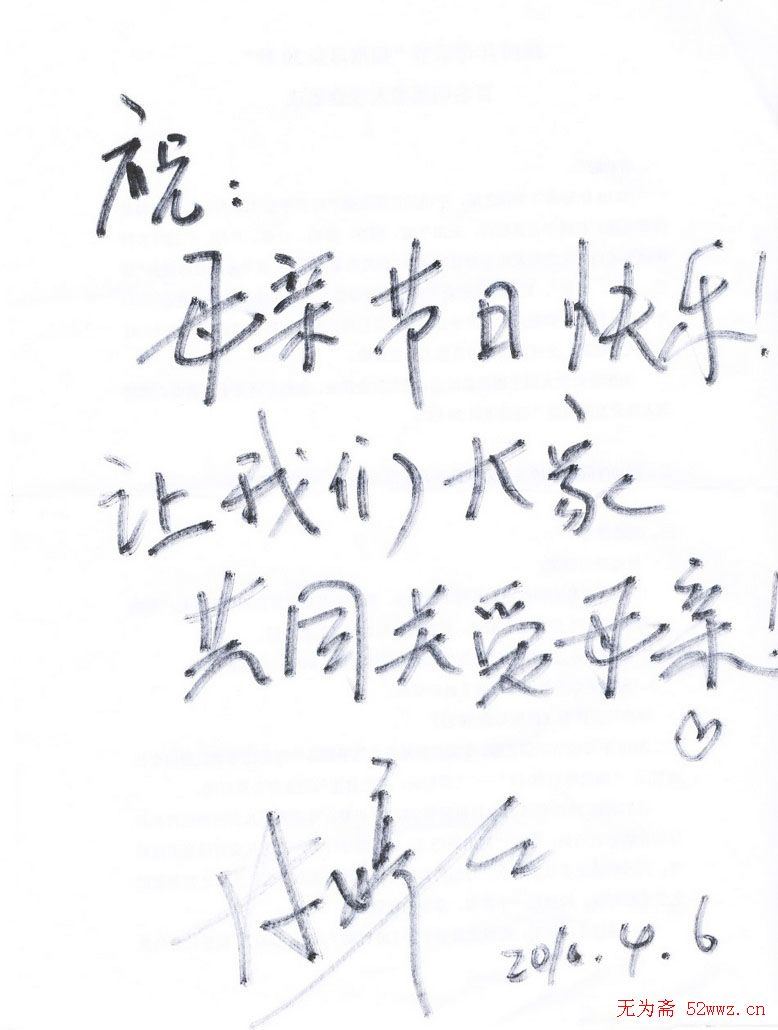 祝：
母亲节日快乐！
让我们大家
共同关爱母亲！
2010.4.6
无为斋 52wwz.cn